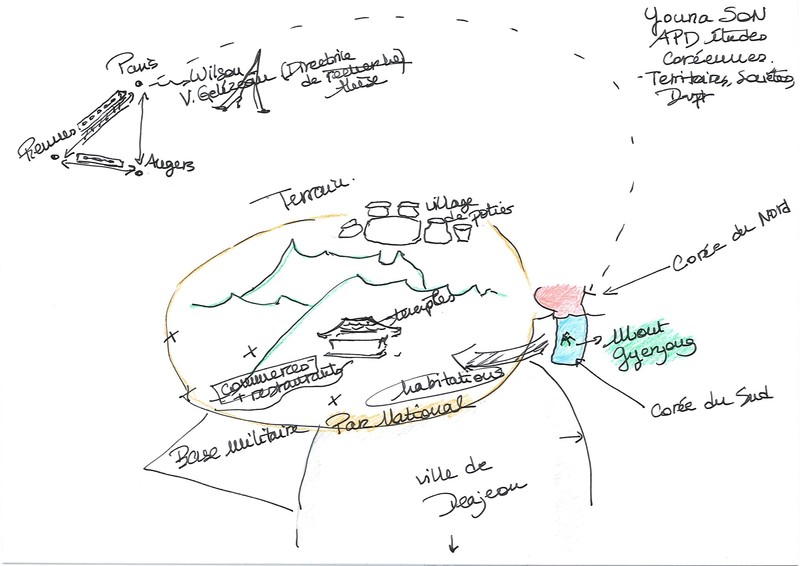 Youna SON
APD études
coréennes.
- Territoires, Sociétés,
Dvpt
Paris
Wilson
V. Gelézeau (Directrice
de recherche
thèse
Rennes
Angers
Terrain.
village
de potiers
Corée du Nord
temples
Mont
Gyeryong
commerces
+ restaurants
habitations
Corée du Sud
Parc National
Base militaire
ville de
Deajeon